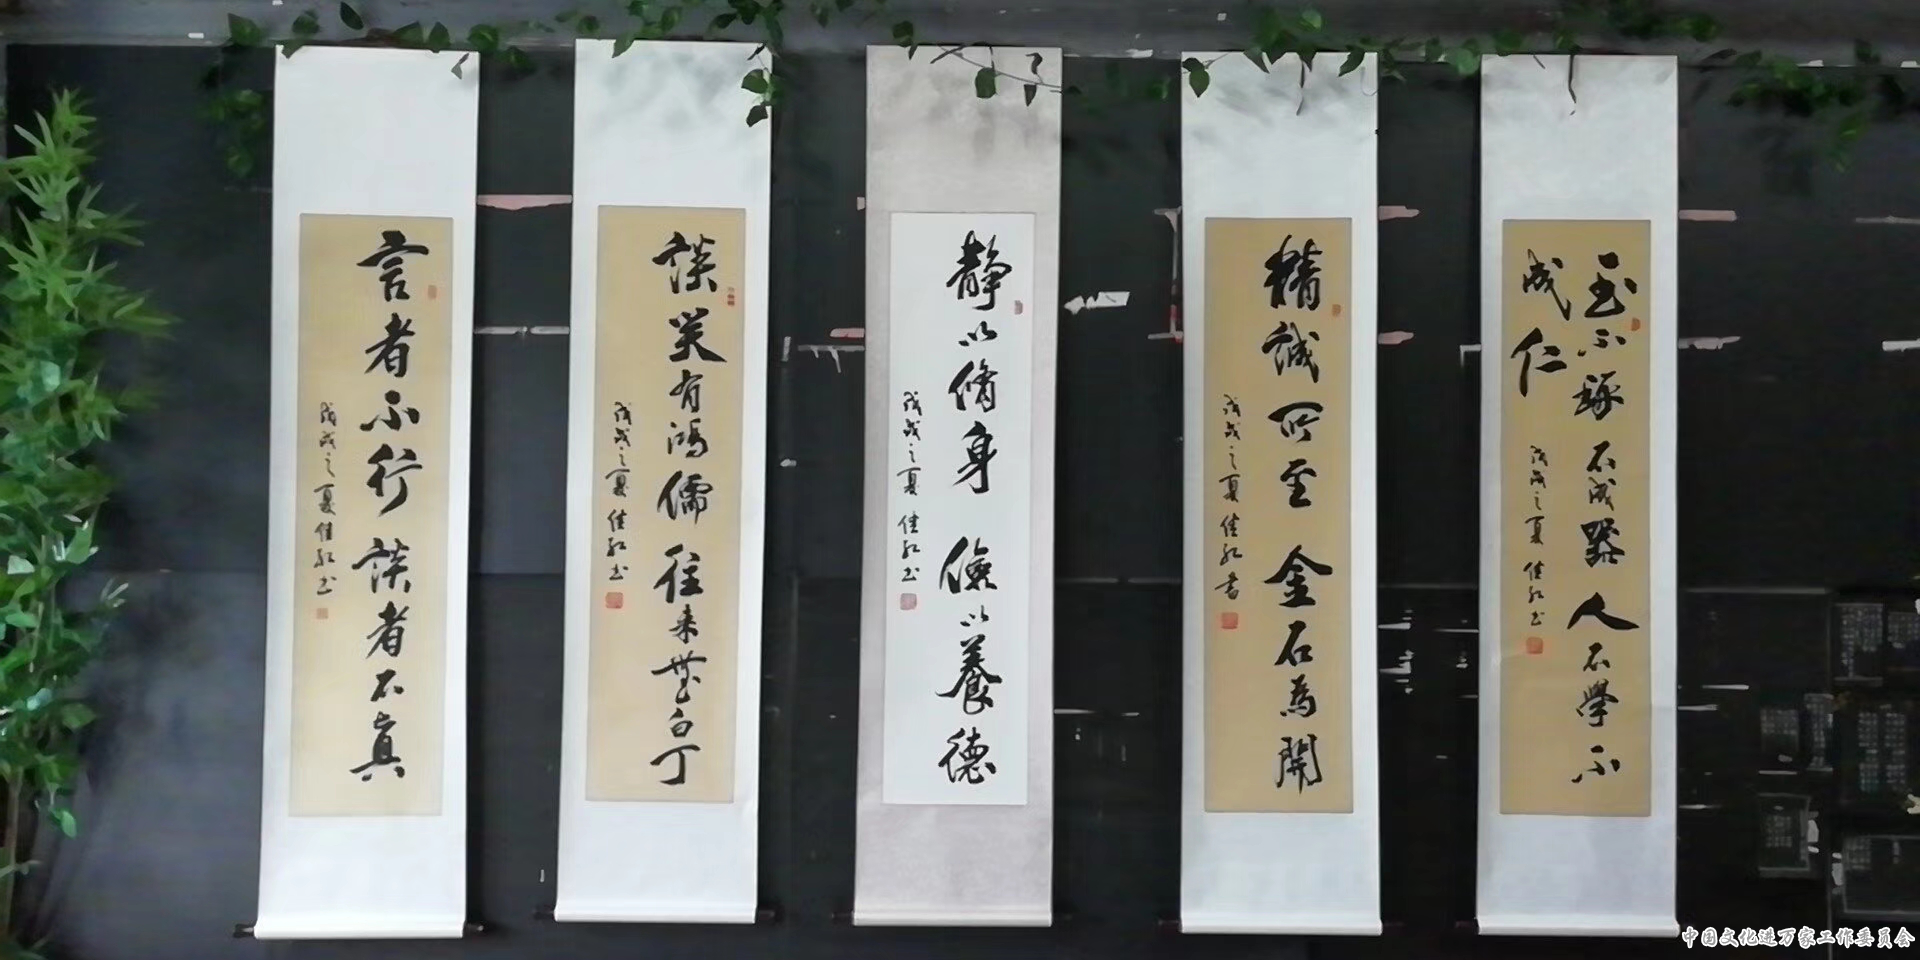 言者不行談者不真
戊戌之夏佳红书
談笑有鴻儒往来無白丁
戊戌之夏佳红书
靜以脩身儉以養德
戊戌之夏佳红书
精誠所至金石為開
戊戌之夏佳红書
玉不琢不成器人不學不
成仁
戊戌之夏佳红书
中国文化进万家工作委员会